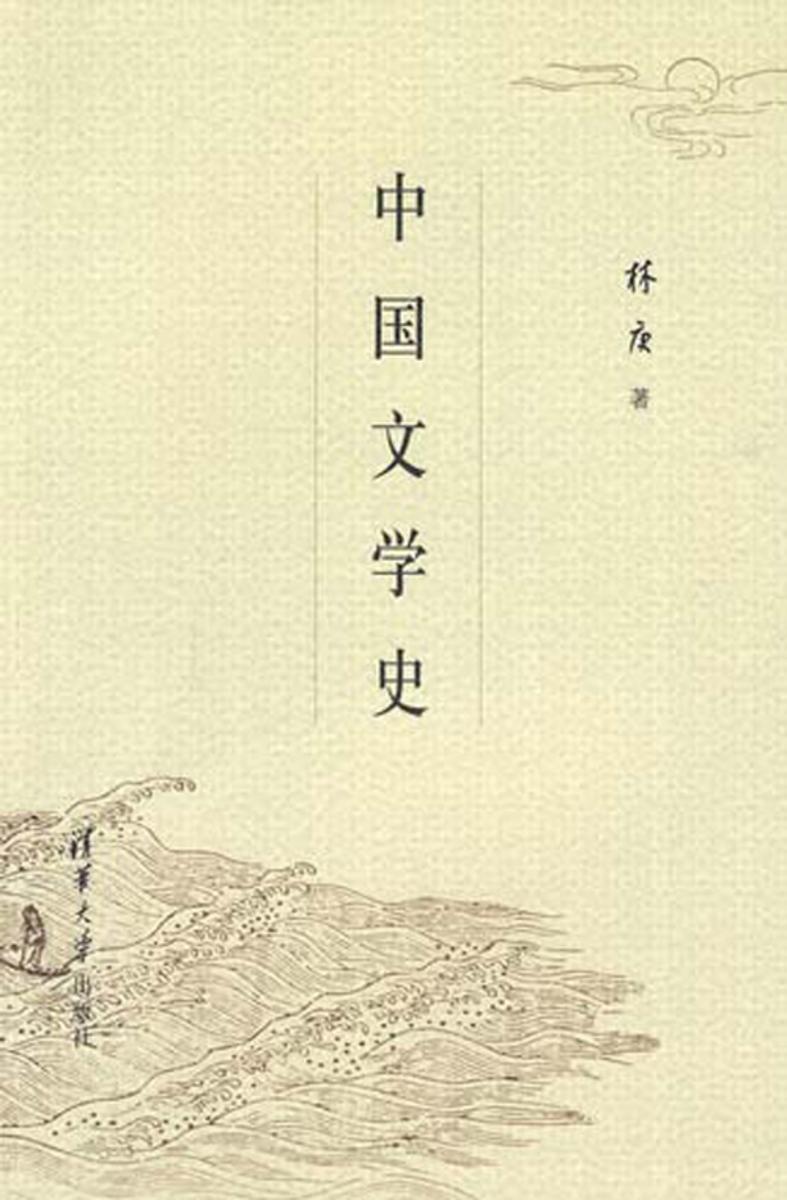 中国文学史
林庚 著
清华大学出版社